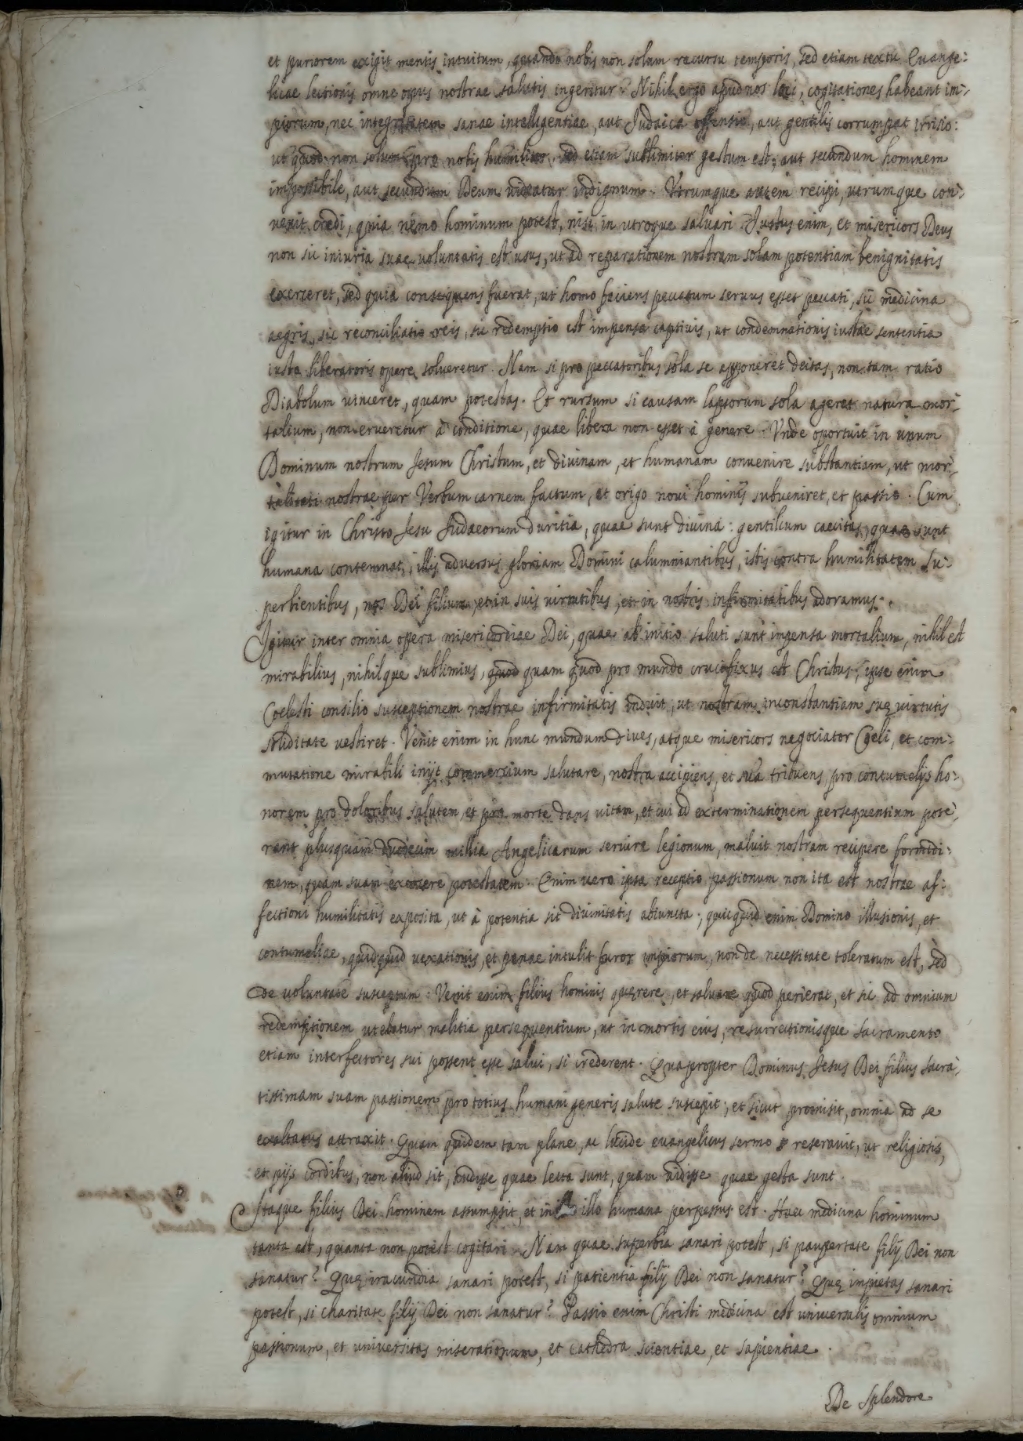 et puriorem exigit mentis intuitum, quando nobis non solum recursu temporis, sed etiam textu Euange-
licae lectionis omne opus nostrae salutis ingeritur. Nihil ergo apud nos loci, cogitationes habeant im-
piorum, nec integritatem sanae intelligentiae, aut Judaica offensio, aut gentilis corrumpat irrisio:
ut quod non solum pro nobis humiliter, sed etiam sublimiter gestum est, aut secundum hominem
impossibile, aut secundum Deum dicatur indignum. Utrumque autem recipi, utrumque con-
uenit credi, quia nemo hominum potest, nisi in utroque saluari. Justus enim, et misericors Deus
non sic iniuria suae uoluntatis est usus, ut ad reparationem nostram solam potentiam benignitatis
exerceret, sed quia consequens fuerat, ut homo faciens peccatum seruus esset peccati, sic medicina
aegris, sic reconciliatio reis, sic redemptio est impensa captiuis, ut condemnationis iustae sententia
iusta liberatoris opere solueretur. Nam si pro peccatoribus sola se opponeret deitas, non tam ratio
Diabolum uinceret, quam potestas. Et rursum si causam lapsorum sola ageret natura mor-
talium, non erueretur à conditione, quae libera non esset à genere. Vnde oportuit in unum
Dominum nostrum Jesum Christum, et diuinam, et humanam conuenire substantiam, ut mor-
talitati nostrae per Verbum carnem factum, et origo noui hominis subueniret, et passio. Cum
igitur in Christo Jesu Judaeorum duritia, quae sunt diuina: gentilium caecitas, quae sunt
humana contemnat, illis aduersus gloriam Domini calumniantibus, istis contra humilitatem su-
perbientibus, nos Dei filium, et in suis uirtutibus, et in nostris infirmitatibus adoramus.
Igitur inter omnia opera misericordiae Dei, quae ab initio saluti sunt impensa mortalium, nihil est
mirabilius, nihilque sublimius, quam quod pro mundo crucifixus est Christus, ipse enim
Coelesti consilio susceptionem nostrae infirmitatis induit, ut nostram inconstantiam suę uirtutis
soliditate uestiret. Venit enim in hunc mundum diues, atque misericors negociator Coeli, et com-
mutatione mirabili inijt commercium salutare, nostra accipiens, et sua tribuens, pro contumelijs ho-
norem pro doloribus salutem, et pro morte dans uitam, et cui ad exterminationem persequentium pote-
rant plusquam duodecim millia Angelicarum seruire legionum, maluit nostram recipere formidi-
nem, quam suam exercere potestatem. Enim uero ipsa receptio passionum non ita est nostrae af-
fectioni humilitatis exposita, ut à potentia sit diuinitatis abiuncta; quicquid enim Domino illusionis, et
contumeliae, quidquid uexationis, et penae intulit furor impiorum, non de necessitate toleratum est, sed
de uoluntate susceptum. Venit enim filius hominis querere, et saluare quod perierat, et sic ad omnium
redemptionem utebatur malitia persequentium, ut in mortis eius, resurrectionisque sacramento
etiam interfectores sui possent esse salui, si crederent. Quapropter Dominus Jesus Dei filius sacra-
tissimam suam passionem pro totius humani generis salute suscepit, et sicut promisit, omnia ad se
exaltatus attraxit. Quam quidem tam plane, ac lucide euangelicus sermo reserauit, ut religiosis,
et pijs cordibus, non aliud sit, audisse quae lecta sunt, quam uidisse quae gesta sunt.
Itaque filius Dei hominem assumpsit, et in illo humana perpessus est. Haec medicina hominum
tanta est, quanta non potest cogitari. Nam quae superbia sanari potest, si paupertate filij Dei non
sanatur? Quę iracundia sanari potest, si patientia filij Dei non sanatur? Quę impietas sanari
potest, si charitate filij Dei non sanatur? Passio enim Christi medicina est uniuersalis omnium
passionum, et uniuersitas miserationum, et cathedra scientiae, et sapientiae.
De Splendore